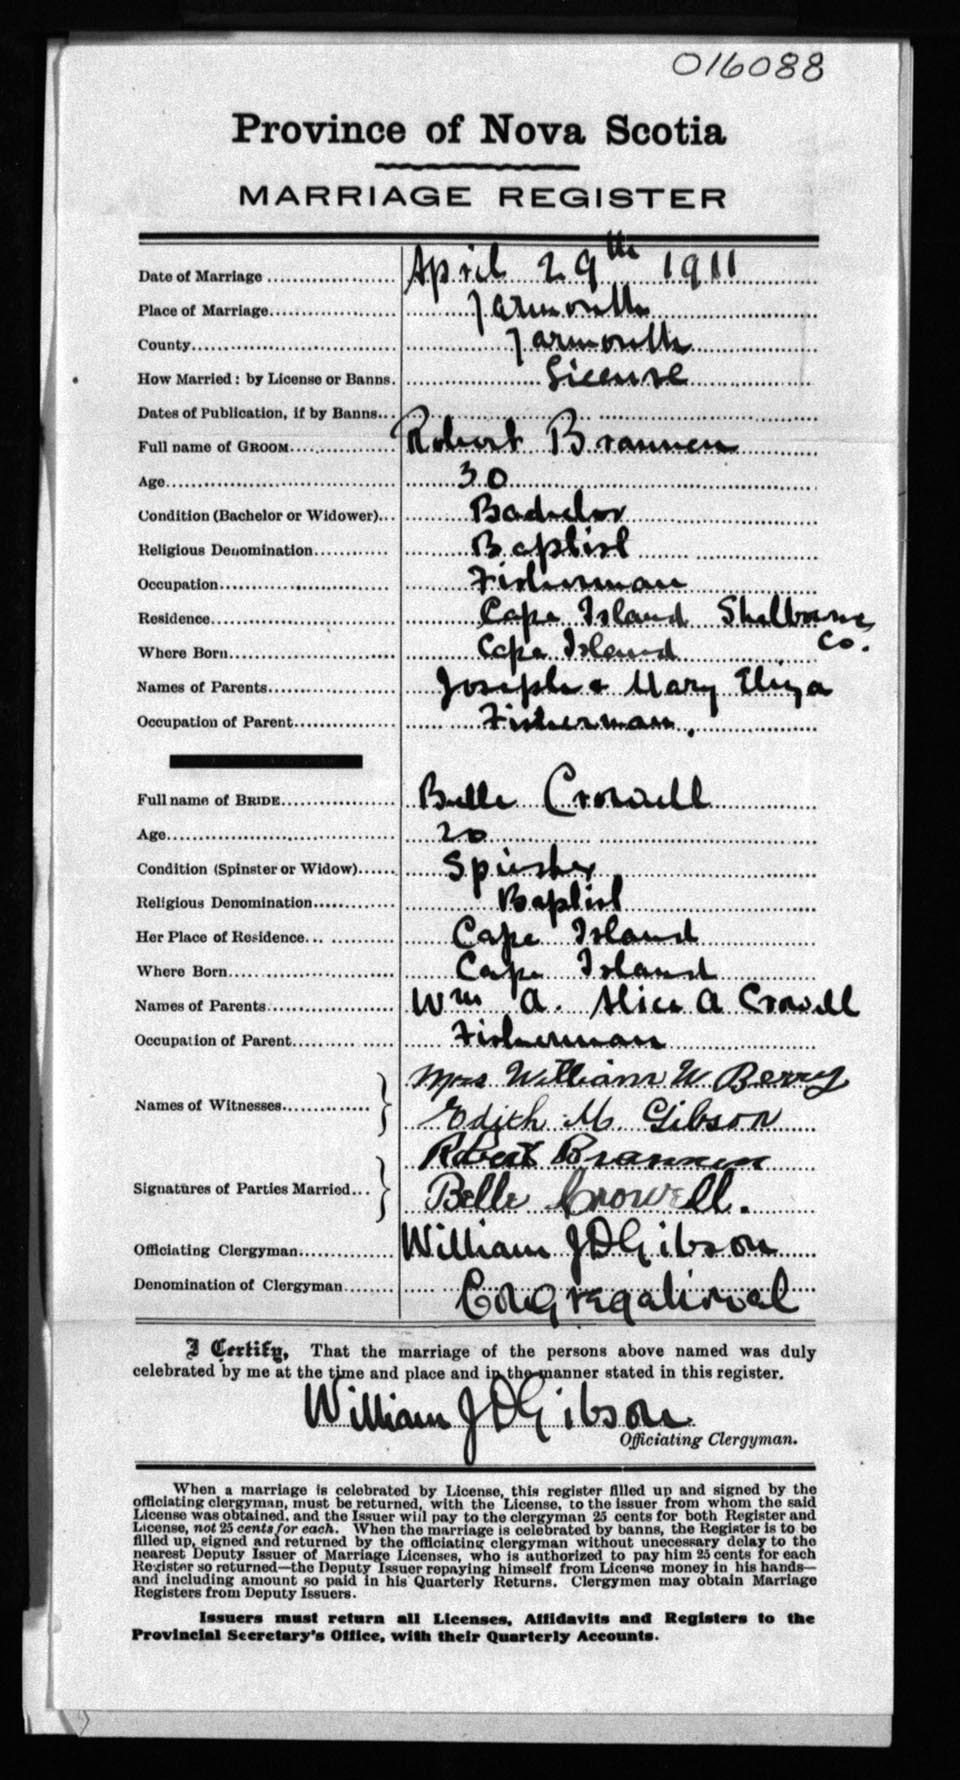 016088
Province of Nova Scotia
MARRIAGE REGISTER
Date of Marriage April 29th 1911
Place of Marriage Yarmouth
County Yarmouth
How Married: by License or Banns. License
Dates of Publication, if by Banns
Full name of GROOM Robert Brannen
Age 30
Condition (Bachelor or Widower) Bachelor
Religious Denomination Baptist
Occupation Fisherman
Residence Cape Island Shelburne Co.
Where Born Cape Island
Names of Parents Joseph & Mary Eliza
Occupation of Parent Fisherman.
Full name of BRIDE Belle Crowell
Age 20
Condition (Spinster or Widow) Spinster
Religious Denomination Baptist
Her Place of Residence Cape Island
Where Born Cape Island
Names of Parents Wm A. Alice A Crowell
Occupation of Parent Fisherman
Names of Witnesses Mrs William W Berry
Edith M. Gibson
Signatures of Parties Married Robert Brannen
Belle Crowell.
Officiating Clergyman William J D Gibson
Denomination of Clergyman Congregational
I Certify, That the marriage of the persons above named was duly
celebrated by me at the time and place and in the manner stated in this register.
William J D Gibson
Officiating Clergyman.
When a marriage is celebrated by License, this register filled up and signed by the
officiating clergyman, must be returned, with the License, to the issuer from whom the said
License was obtained, and the Issuer will pay to the clergyman 25 cents for both Register and
License, not 25 cents for each. When the marriage is celebrated by banns, the Register is to be
filled up, signed and returned by the officiating clergyman without unnecessary delay to the
nearest Deputy Issuer of Marriage Licenses, who is authorized to pay him 25 cents for each
Register so returned—the Deputy Issuer repaying himself from License money in his hands—
and including amount so paid in his Quarterly Returns. Clergymen may obtain Marriage
Registers from Deputy Issuers.
Issuers must return all Licenses, Affidavits and Registers to the
Provincial Secretary's Office, with their Quarterly Accounts.